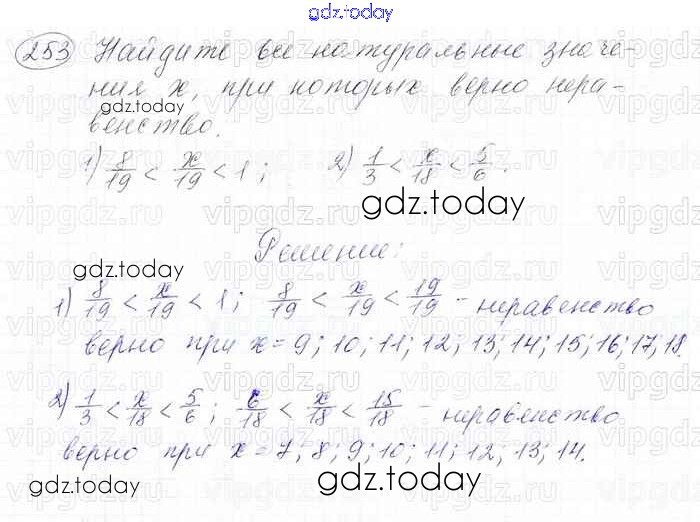 gdz.today
253 Найдите все натуральные значе-
ния x, при которых верно нера-
gdz.today
венство.
1) 8/19 < x/19 < 1; 2) 1/3 < x/18 < 5/6.
gdz.today
Решение:
gdz.today
1) 8/19 < x/19 < 1; 8/19 < x/19 < 19/19 - неравенство
верно при x = 9; 10; 11; 12; 13; 14; 15; 16; 17; 18.
2) 1/3 < x/18 < 5/6; 6/18 < x/18 < 15/18 - неравенство
верно при x = 7; 8; 9; 10; 11; 12; 13; 14.
gdz.today
gdz.today